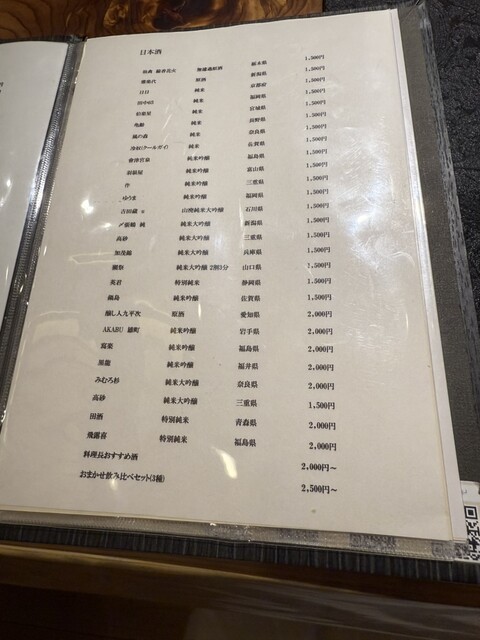 日本酒
無濾過原酒 栃木県 1,500円
原酒 新潟県 1,500円
日日 純米 京都府 1,500円
田中65 純米 福岡県 1,500円
純米 宮城県 1,500円
亀齢 純米 長野県 1,500円
風の森 純米 奈良県 1,500円
冷収(クールガイ) 純米 佐賀県 1,500円
會津宮泉 純米吟醸 福島県 1,500円
羽根屋 純米吟醸 富山県 1,500円
作 純米吟醸 三重県 1,500円
ゆうま 純米吟醸 福岡県 1,500円
吉田蔵 u 山廃純米大吟醸 石川県 1,500円
〆張鶴 純 純米大吟醸 新潟県 1,500円
高砂 純米大吟醸 三重県 1,500円
加茂錦 純米大吟醸 兵庫県 1,500円
獺祭 純米大吟醸 2割3分 山口県 1,500円
英君 特別純米 静岡県 1,500円
鍋島 純米吟醸 佐賀県 1,500円
醸し人九平次 原酒 愛知県 2,000円
AKABU 雄町 純米吟醸 岩手県 2,000円
寫楽 純米吟醸 福島県 2,000円
黒龍 純米吟醸 福井県 2,000円
みむろ杉 純米大吟醸 奈良県 2,000円
高砂 純米大吟醸 三重県 1,500円
田酒 特別純米 青森県 2,000円
飛露喜 特別純米 福島県 2,000円
料理長おすすめ酒 2,000円～
おまかせ飲み比べセット(3種) 2,500円～